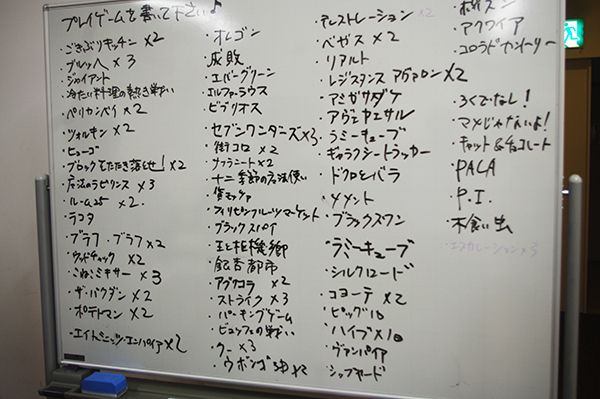 プレイゲームを書いて下さい♪
・ごきぶりキッチン ×2
・ブルッヘ ×3
・ジャイアント
・冷たい料理の熱き戦い
・ペリカンベイ ×2
・ツォルキン ×2
・ヒューゴ
・ブロックをたたき落とせ! ×2
・魔法のラビリンス ×3
・ルーム25 ×2.
・ラコタ
・ブラフ・ブラフ ×2
・ウッドチャック ×2
・こねこミキサー ×3
・ザ・バクダン ×2
・ポテトマン ×2
・エイトミニッツ・エンパイア ×2
・オレゴン
・成敗
・エバーグリーン
・エルファーラウス
・ビブリオス
・セブンワンダーズ ×3
・街コロ ×2
・サッシミート ×2
・十二季節の魔法使い
・貨モッツァ
・フィリピンフルーツマーケット
・ブラックスパイ
・王と枢機卿
・飢杏都市
・アブクコラ ×2
・ストライク ×3
・パーキングゲーム
・ビュッフェの戦い
・クー ×3
・ウボンゴ3D ×2
・テレストレーション ×2
・ベガス ×2
・リアルト
・レジスタンス アヴァロン ×2
・アミガサダケ
・アヴェカエサル
・ラミーキューブ
・ギャラクシートラッカー
・ドクロとバラ
・メメント
・ブラックスワン
・ラミーキューブ
・シルクロード
・コヨーテ ×2
・ビッグ10
・ハイブ ×10
・ヴァンパイア
・シップヤード
・ポイズン
・アクワイア
・コロラドカントリー
・ろくでなし!
・マメじゃないよ!
・キャット&チョコレート
・PALA
・P.I.
・木食い虫
・エスカレーション ×3